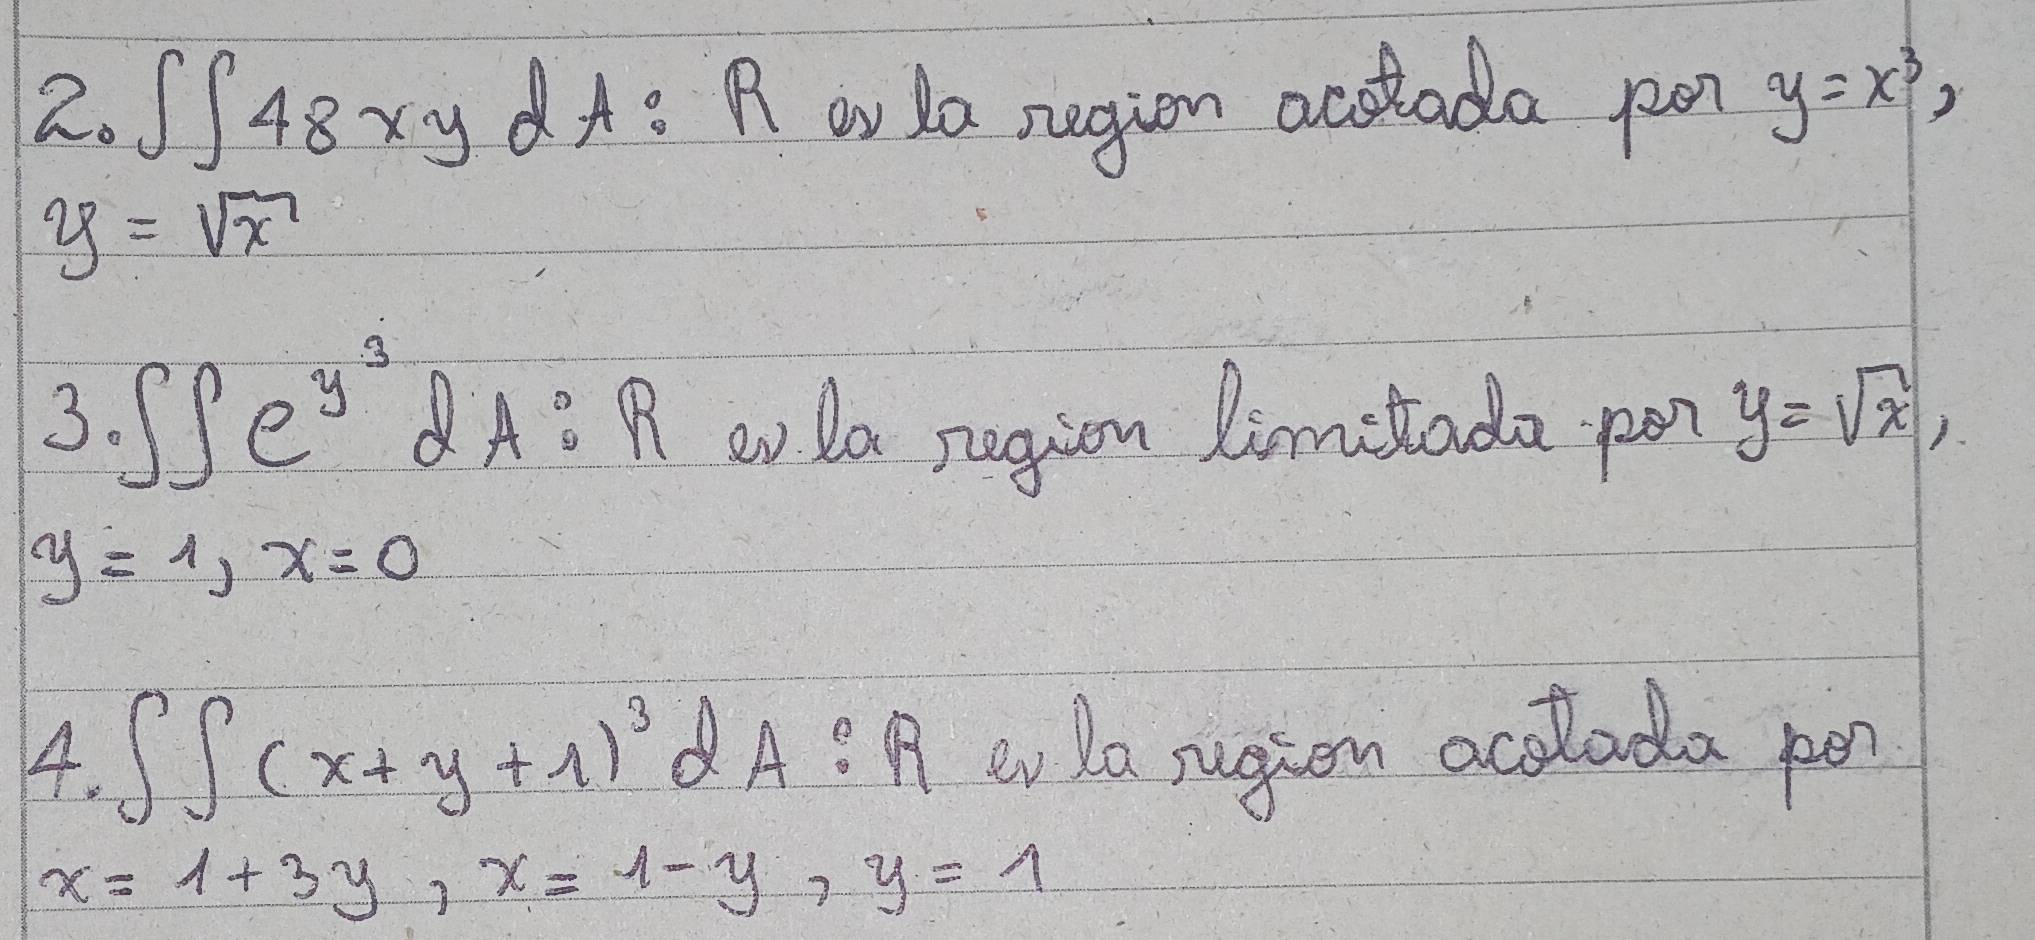 2. ∫∫48xy dA: R es la region acotada por y=x³,
y = √x
3. ∫∫e^y³ dA: R es la region limitada por y=√x,
y = 1, x=0
4. ∫∫(x+y+1)³ dA: R es la region acotada por
x = 1+3y, x = 1-y, y = 1